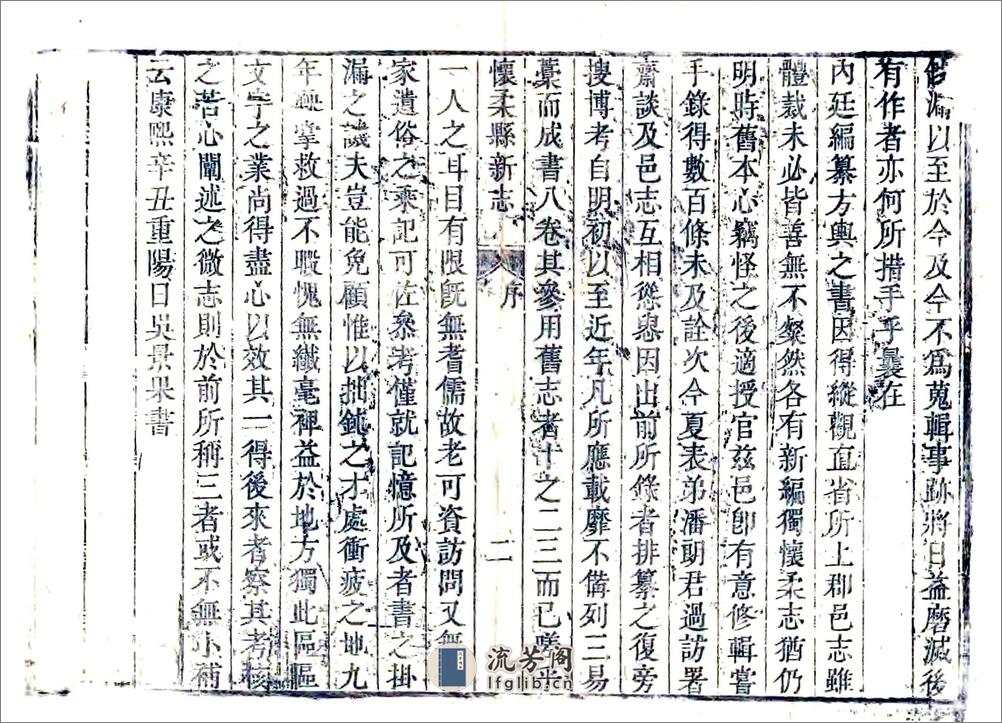 漏以至於今及今不爲蒐輯事跡將日益磨滅後
有作者亦何所措手乎曩在
內廷編纂方輿之書因得縱觀直省所上郡邑志雖
體裁未必皆善無不粲然各有新編獨懷柔志猶仍
明時舊本心竊怪之後適授官茲邑卽有意修輯嘗
手錄得數百條未及詮次今夏表弟潘朗君過訪署
齋談及邑志互相慫恿因出前所錄者排纂之復旁
搜博考自明初以至近年凡所應載靡不備列三易
藁而成書八卷其參用舊志者十之二三而已
懷柔縣新志 序 二
一人之耳目有限旣無耆儒故老可資訪問又無
家遺俗之乘記可佐參考僅就記憶所及者書之掛
漏之譏夫豈能免顧惟以拙鈍之才處衝疲之地九
年鞅掌救過不暇愧無纖毫裨益於地方獨此區區
文字之業尚得盡心以效其一得後來者察其考核
之苦心闡述之微志則於前所稱三者或不無小補
云康熙辛丑重陽日吳景果書
流芳阁
lfglib.cn